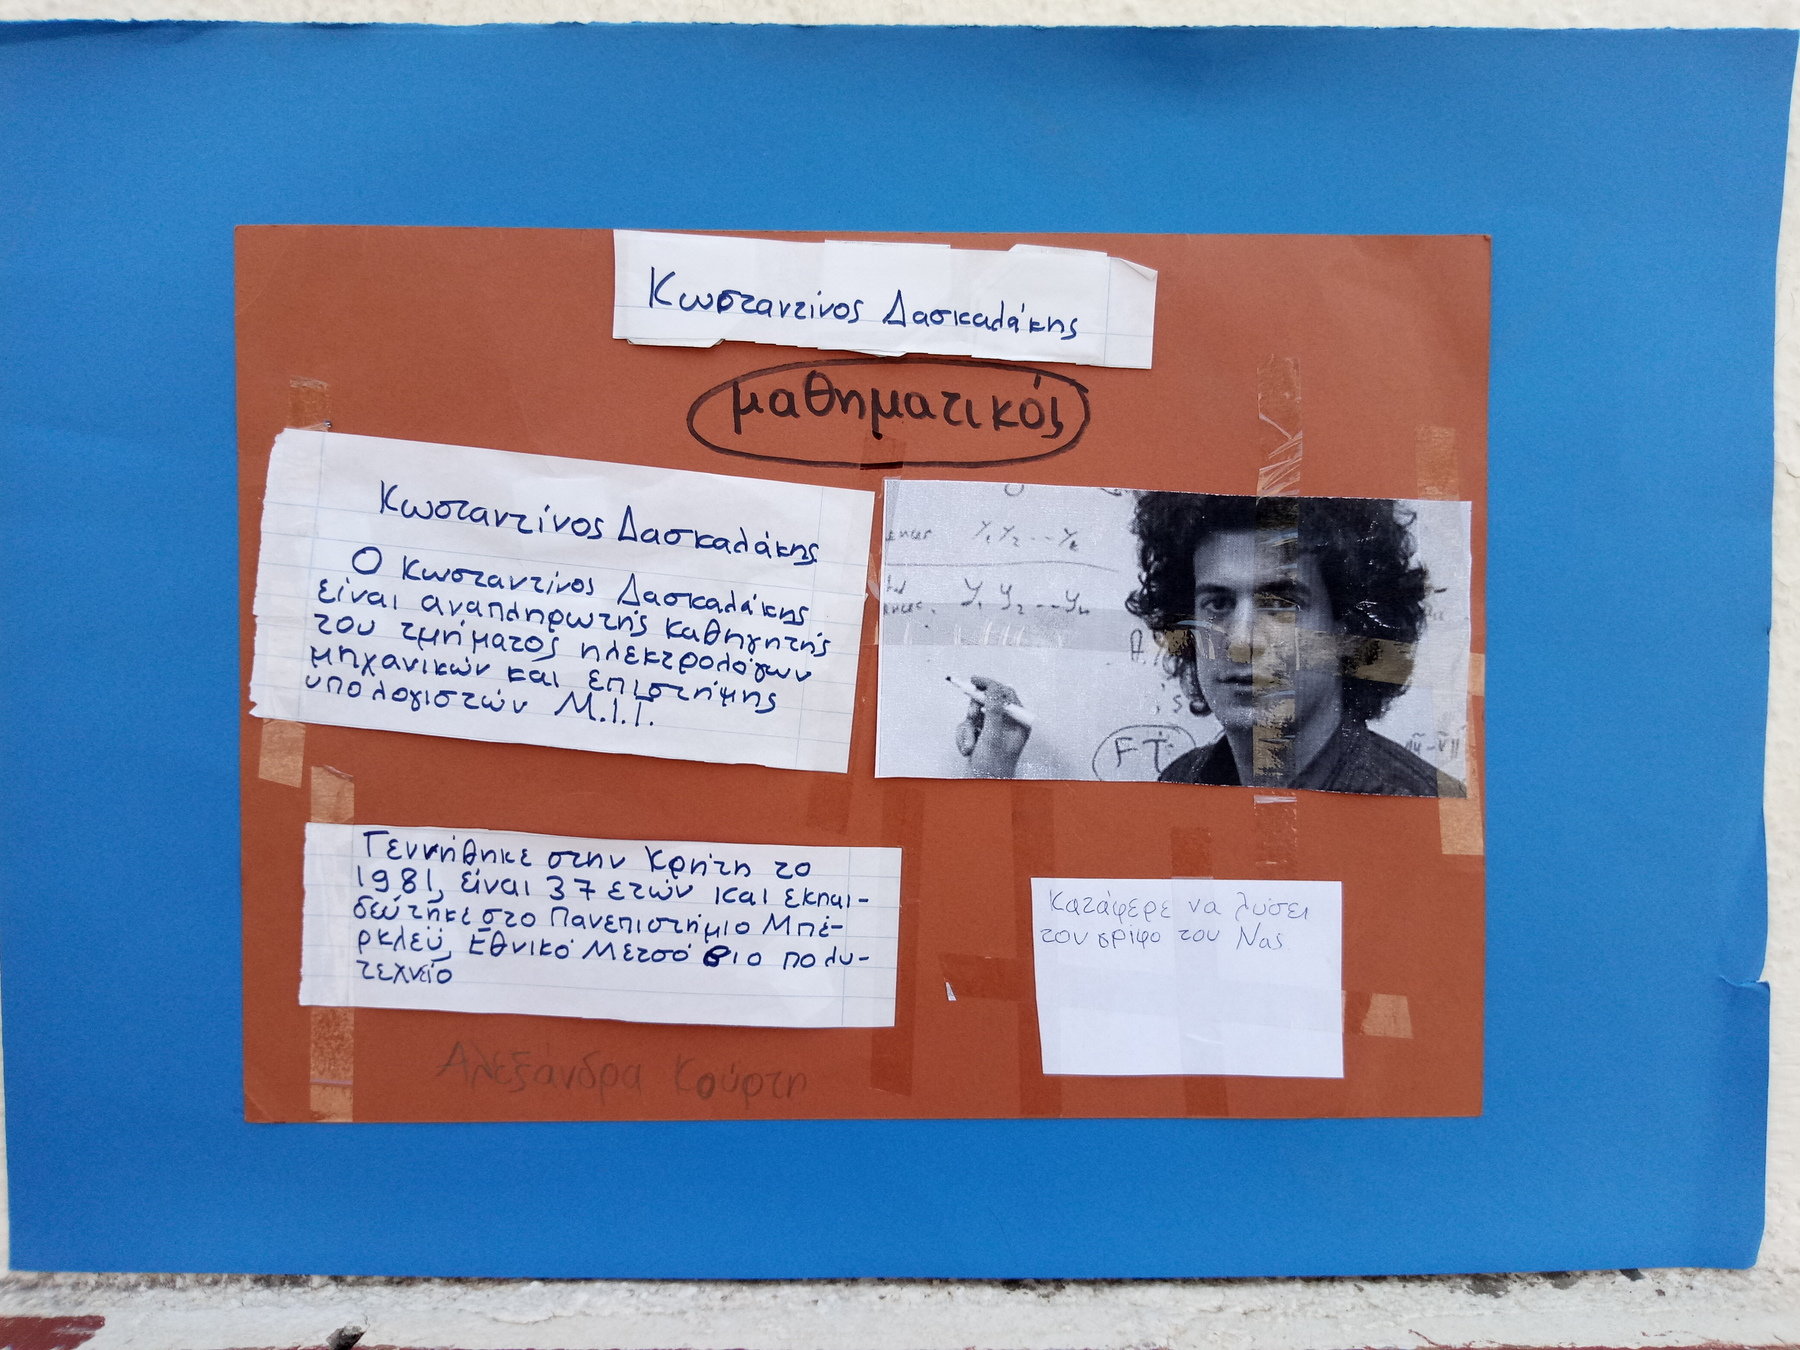 Κωσταντίνος Δασκαλάκης
μαθηματικός
Κωσταντίνος Δασκαλάκης
Ο Κωσταντίνος Δασκαλάκης
είναι αναπληρωτής καθηγητής
του τμήματος ηλεκτρολόγων
μηχανικών και επιστήμης
υπολογιστών Μ.Ι.Τ.
Y₁ Y₂ ... Yₖ
Y₁ Y₂ ... Yₙ
FT
Γεννήθηκε στην Κρήτη το
1981, είναι 37 ετών και εκπαι-
δεύτηκε στο Πανεπιστήμιο Μπέ-
ρκλεϋ, Εθνικό Μετσόβιο πολυ-
τεχνείο
Κατάφερε να λύσει
τον γρίφο του Νας
Αλεξάνδρα Κούρτη